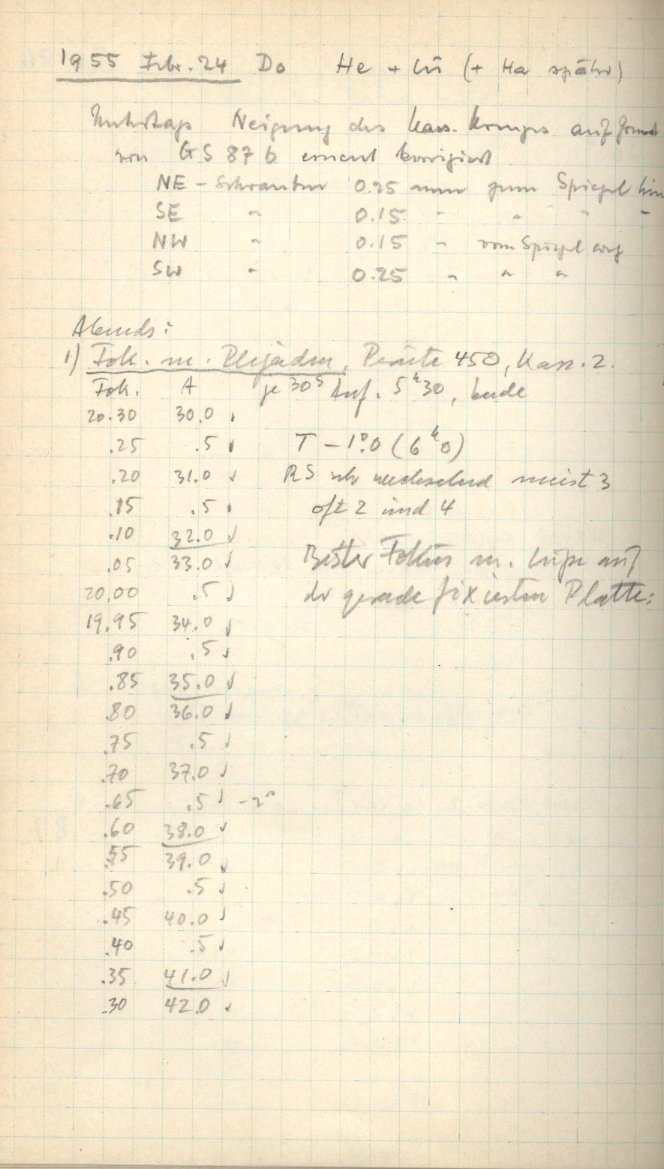 1955 Febr. 24 Do He + Lü (+ Ha später)
Neigung des Kass. Kranzes auf Grund
von GS 87 b erneut korrigiert
NE - Schrauben 0.25 mm zum Spiegel hin
SE " 0.15 " " " "
NW " 0.15 " vom Spiegel weg
SW " 0.25 " " "
Abends:
1) Fok. m. Plejaden, Perutz 450, Kass. 2.
Fok. A je 30s Auf. 5h30, beide
20.30 30.0 ✓
.25 .5 ✓ T - 1°.0 (6h0)
.20 31.0 ✓ RS sehr wechselnd meist 3
.15 .5 ✓ oft 2 und 4
.10 32.0 ✓
.05 33.0 ✓ Bester Fokus m. Lupe auf
20.00 .5 ✓ der gerade fixierten Platte:
19.95 34.0 ✓
.90 .5 ✓
.85 35.0 ✓
.80 36.0 ✓
.75 .5 ✓
.70 37.0 ✓
.65 .5 ✓
.60 38.0 ✓
.55 39.0 ✓
.50 .5 ✓
.45 40.0 ✓
.40 .5 ✓
.35 41.0 ✓
.30 42.0 ✓